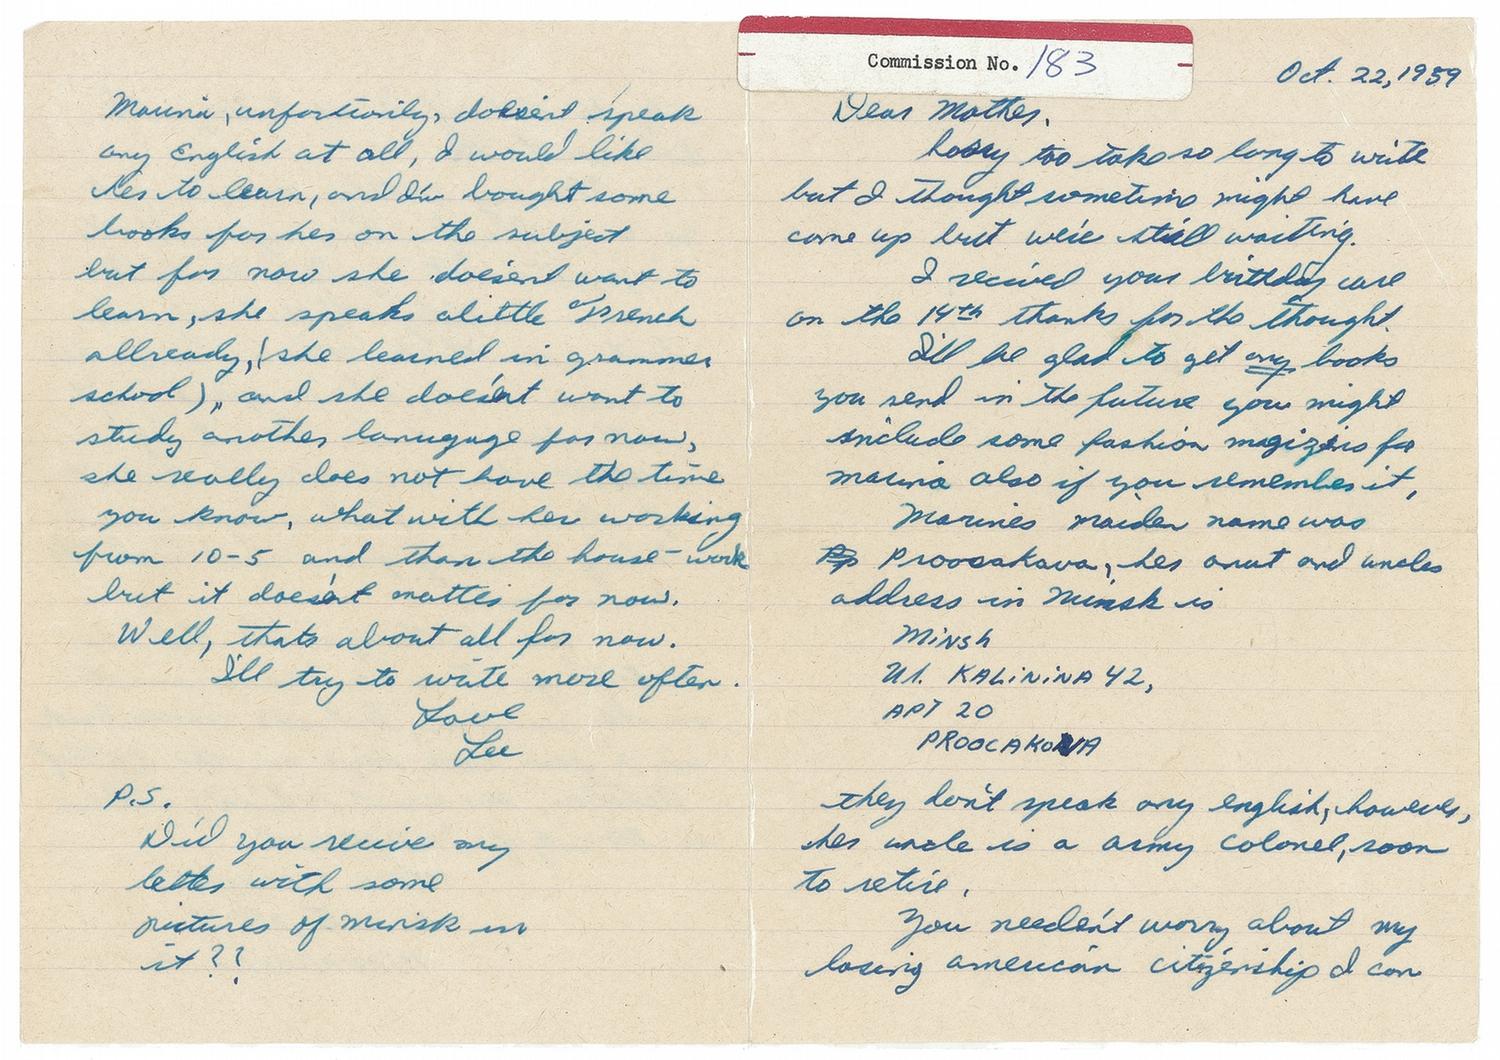 Commission No. 183
Oct. 22, 1959
Dear Mother,
Sorry too take so long to write
but I thought sometime might have
come up but we'ie still waiting.
I recived your brithday care
on the 14th thanks for the thought.
I'll be glad to get any books
you send in the future you might
include some fashion magizins for
marina also if you remember it,
Marines maiden name was
Proosakava, her anut and uncles
address in Minsk is
MiNSk
Ul. KALiNiNA 42,
APT 20
PROOCAKOVA
they don't speak any english, however,
her uncle is a army colonel, soon
to retire.
You needen't worry about my
losing american citizenship I can
Marina, unfortionily, doesent speak
any English at all, I would like
her to learn, and I'v bought some
books for her on the subject
but for now she doesent want to
learn, she speaks alittle French
allready, (she learned in grammer
school),, and she doesn't want to
study another lanugage for now,
she really does not have the time
you know, what with her working
from 10-5 and than the house-work
but it doesn't matter for now.
Well, thats about all for now.
I'll try to write more often.
Love
Lee
P.S.
Did you recive my
letter with some
pictures of Minsk in
it??